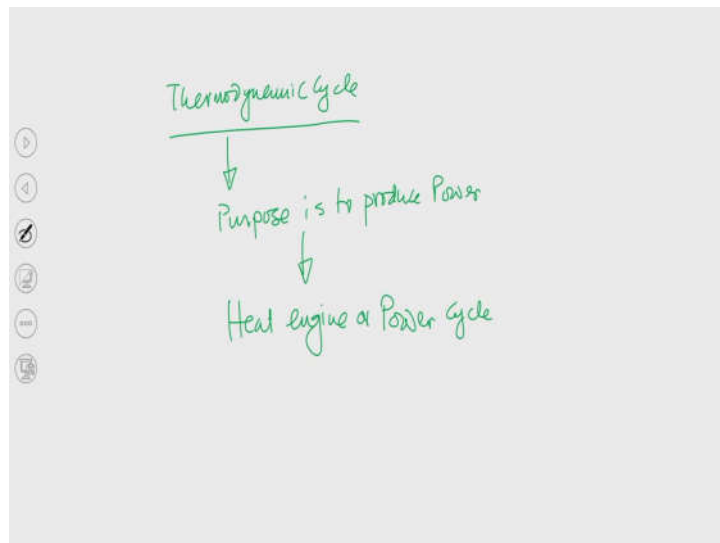 Thermodynamic Cycle
Purpose is to produce Power
Heat engine or Power cycle